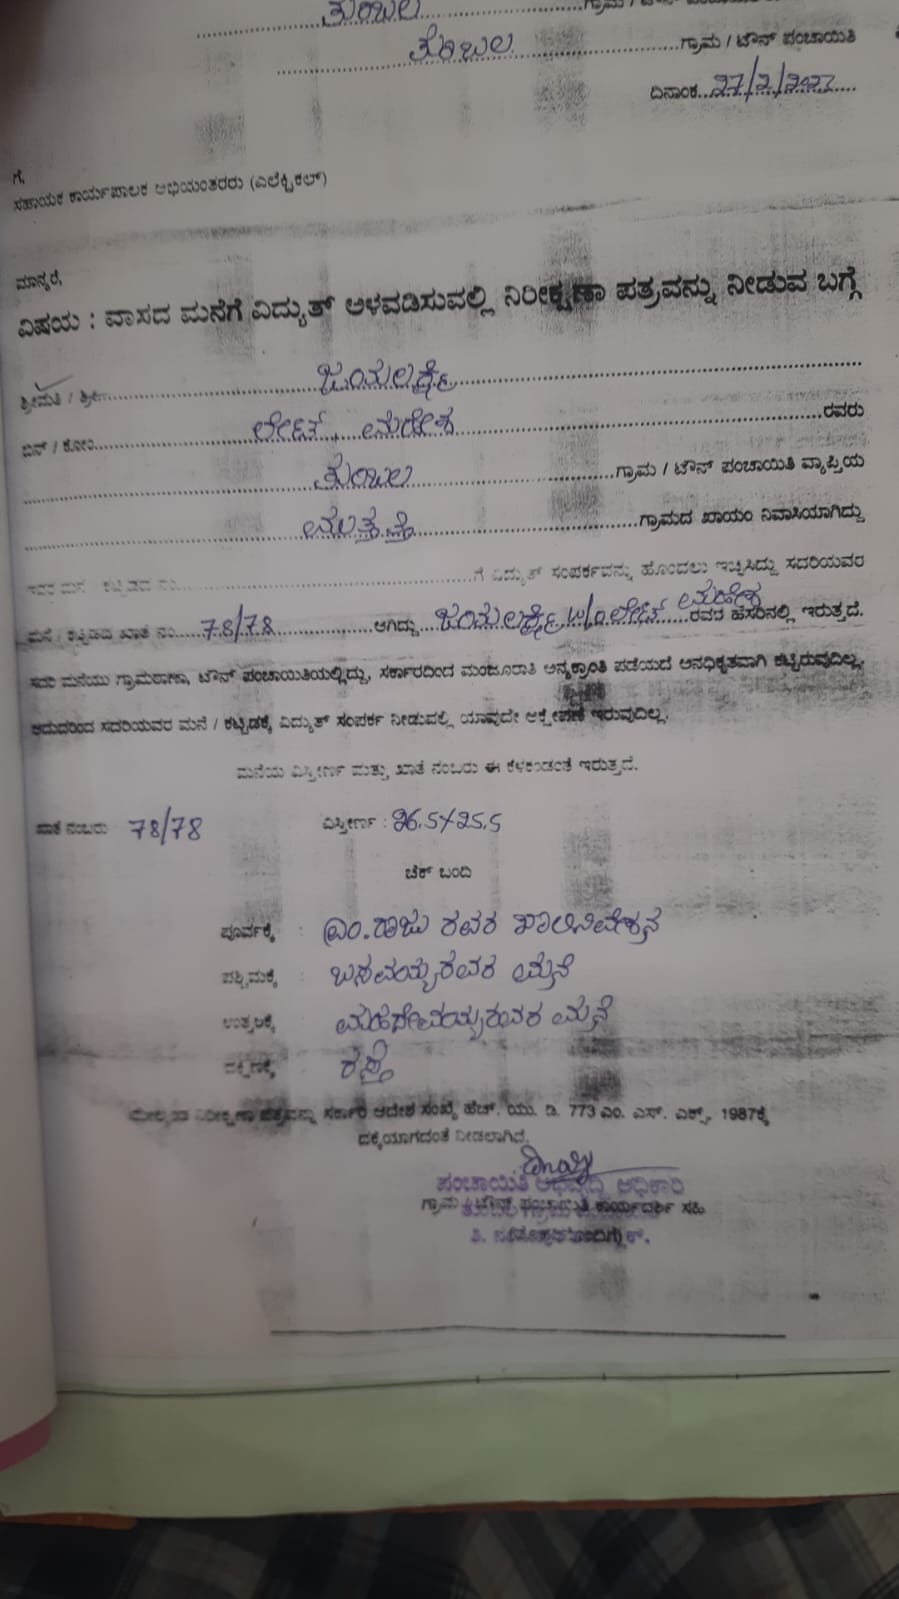 ತುಂಬಲ ಗ್ರಾಮ / ಟೌನ್ ಪಂಚಾಯಿತಿ
ತುಂಬಲ ಗ್ರಾಮ / ಟೌನ್ ಪಂಚಾಯಿತಿ
ದಿನಾಂಕ 27/2/2023
ಗೆ,
ಸಹಾಯಕ ಕಾರ್ಯಪಾಲಕ ಅಭಿಯಂತರರು (ಎಲೆಕ್ಟ್ರಿಕಲ್)
ಮಾನ್ಯರೆ,
ವಿಷಯ : ವಾಸದ ಮನೆಗೆ ವಿದ್ಯುತ್ ಅಳವಡಿಸುವಲ್ಲಿ ನಿರೀಕ್ಷಣಾ ಪತ್ರವನ್ನು ನೀಡುವ ಬಗ್ಗೆ
ಶ್ರೀಮತಿ / ಶ್ರೀ ಜಯಲಕ್ಷ್ಮಿ
ಬಿನ್ / ಕೋಂ ಲೇಟ್ ಮಹೇಶ ರವರು
ತುಂಬಲ ಗ್ರಾಮ / ಟೌನ್ ಪಂಚಾಯಿತಿ ವ್ಯಾಪ್ತಿಯ
ಗ್ರಾಮದ ಖಾಯಂ ನಿವಾಸಿಯಾಗಿದ್ದು
ಇವರ ಮನೆ ಕಟ್ಟಡದ ನಂ ಗೆ ವಿದ್ಯುತ್ ಸಂಪರ್ಕವನ್ನು ಹೊಂದಲು ಇಚ್ಛಿಸಿದ್ದು ಸದರಿಯವರ
ಮನೆ / ಕಟ್ಟಡದ ಖಾತೆ ನಂ 78/78 ಆಗಿದ್ದು ಜಯಲಕ್ಷ್ಮಿ W/o ಲೇಟ್ ಮಹೇಶ ರವರ ಹೆಸರಿನಲ್ಲಿ ಇರುತ್ತದೆ.
ಸದರಿ ಮನೆಯು ಗ್ರಾಮಠಾಣಾ, ಟೌನ್ ಪಂಚಾಯಿತಿಯಲ್ಲಿದ್ದು, ಸರ್ಕಾರದಿಂದ ಮಂಜೂರಾತಿ ಅನ್ಯಕ್ರಾಂತಿ ಪಡೆಯದೆ ಅನಧಿಕೃತವಾಗಿ ಕಟ್ಟಿರುವುದಿಲ್ಲ.
ಆದುದರಿಂದ ಸದರಿಯವರ ಮನೆ / ಕಟ್ಟಡಕ್ಕೆ ವಿದ್ಯುತ್ ಸಂಪರ್ಕ ನೀಡುವಲ್ಲಿ ಯಾವುದೇ ಆಕ್ಷೇಪಣೆ ಇರುವುದಿಲ್ಲ.
ಮನೆಯ ವಿಸ್ತೀರ್ಣ ಮತ್ತು ಖಾತೆ ನಂಬರು ಈ ಕೆಳಕಂಡಂತೆ ಇರುತ್ತದೆ.
ಖಾತೆ ನಂಬರು 78/78 ವಿಸ್ತೀರ್ಣ : 26.5X25.5
ಚೆಕ್ ಬಂದಿ
ಪೂರ್ವಕ್ಕೆ : ಎಂ.ರಾಜು ರವರ ಖಾಲಿನಿವೇಶನ
ಪಶ್ಚಿಮಕ್ಕೆ : ಬಸವಯ್ಯರವರ ಮನೆ
ಉತ್ತರಕ್ಕೆ : ಮಹದೇವಯ್ಯರವರ ಮನೆ
ದಕ್ಷಿಣಕ್ಕೆ : ರಸ್ತೆ
ಮೇಲ್ಕಂಡ ನಿರೀಕ್ಷಣಾ ಪತ್ರವನ್ನು ಸರ್ಕಾರಿ ಆದೇಶ ಸಂಖ್ಯೆ ಹೆಚ್. ಯು. ಡಿ. 773 ಎಂ. ಎನ್. ಎಕ್ಸ್. 1987ಕ್ಕೆ
ಧಕ್ಕೆಯಾಗದಂತೆ ನೀಡಲಾಗಿದೆ.
ಪಂಚಾಯಿತಿ ಅಭಿವೃದ್ಧಿ ಅಧಿಕಾರಿ
ಗ್ರಾಮ / ಟೌನ್ ಪಂಚಾಯಿತಿ ಕಾರ್ಯದರ್ಶಿ ಸಹಿ